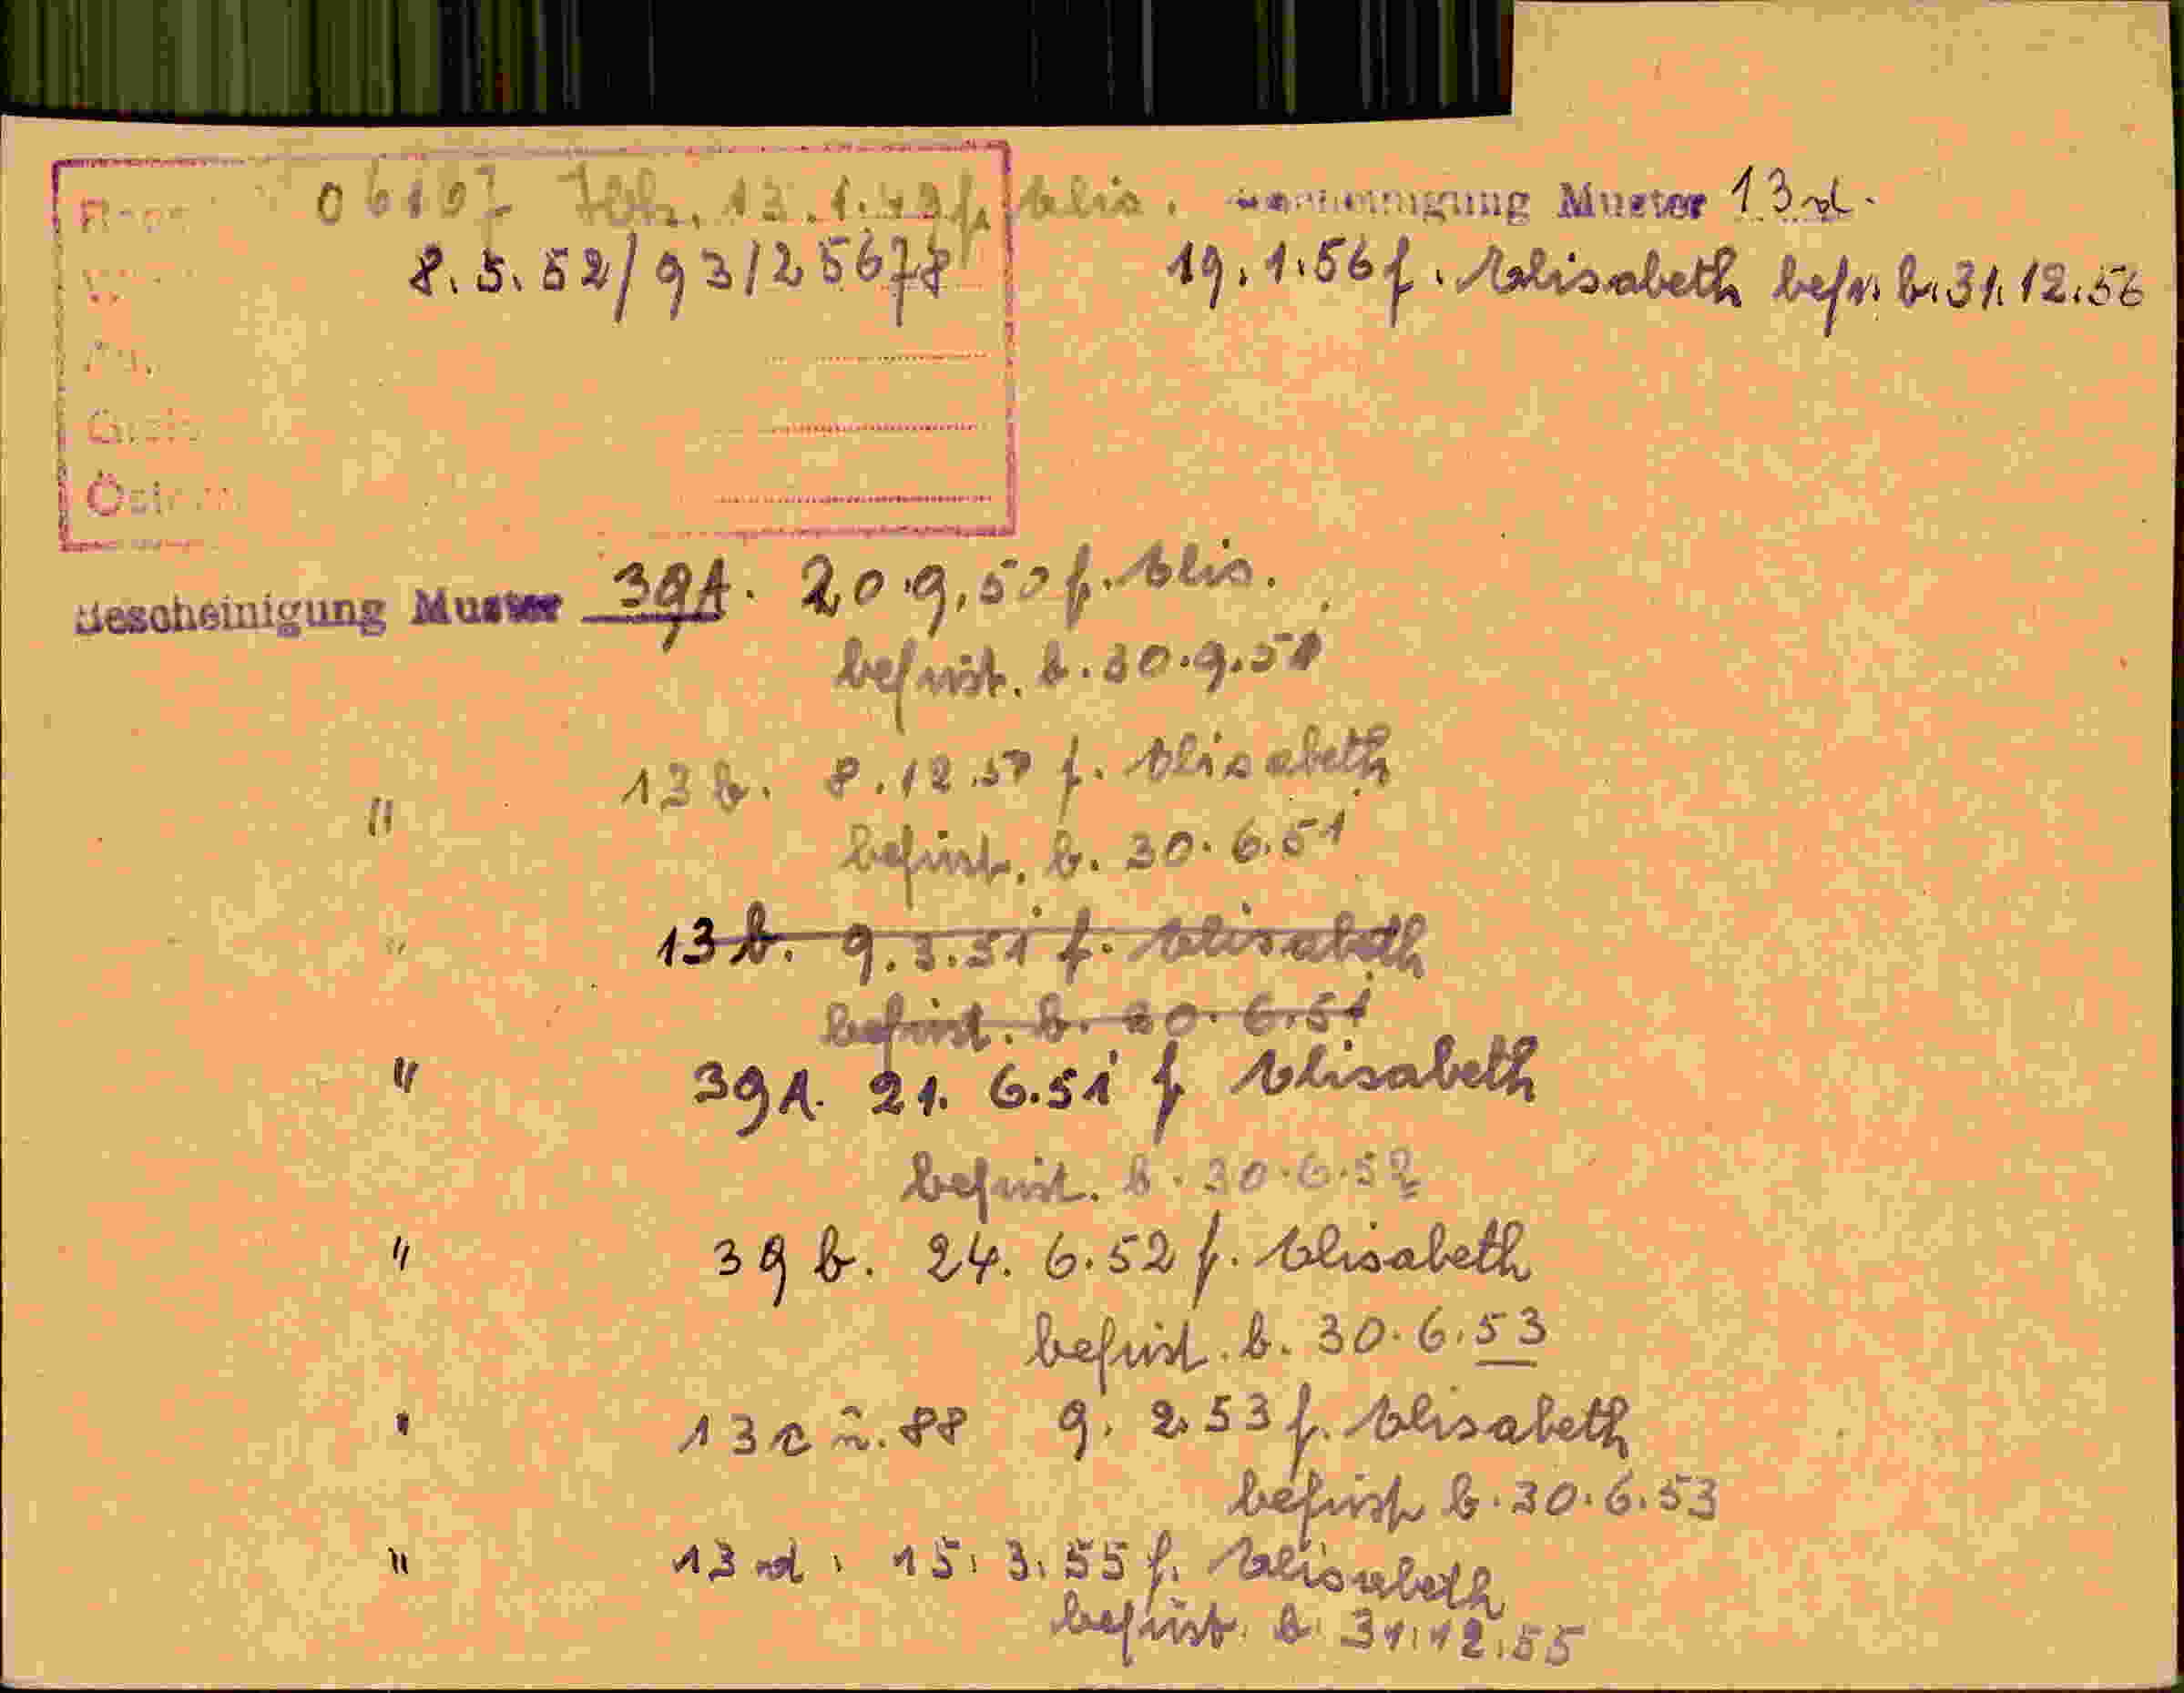 06107 13.1.49 f. Elis. Bescheinigung Muster 13d.
8.5.52/93/25678
19.1.56 f. Elisabeth befr. b. 31.12.56
Bescheinigung Muster 39A. 20.9.50 f. Elis.
befrist. b. 30.9.51
" 13b. 8.12.50 f. Elisabeth
befrist. b. 30.6.51
" 13b. 9.3.51 f. Elisabeth
befrist. b. 30.6.51
" 39A. 21.6.51 f Elisabeth
befrist. b. 30.6.52
" 39b. 24.6.52 f. Elisabeth
befrist. b. 30.6.53
" 13c 88 9.2.53 f. Elisabeth
befrist b. 30.6.53
" 13d. 15.3.55 f. Elisabeth
befrist. b. 31.12.55